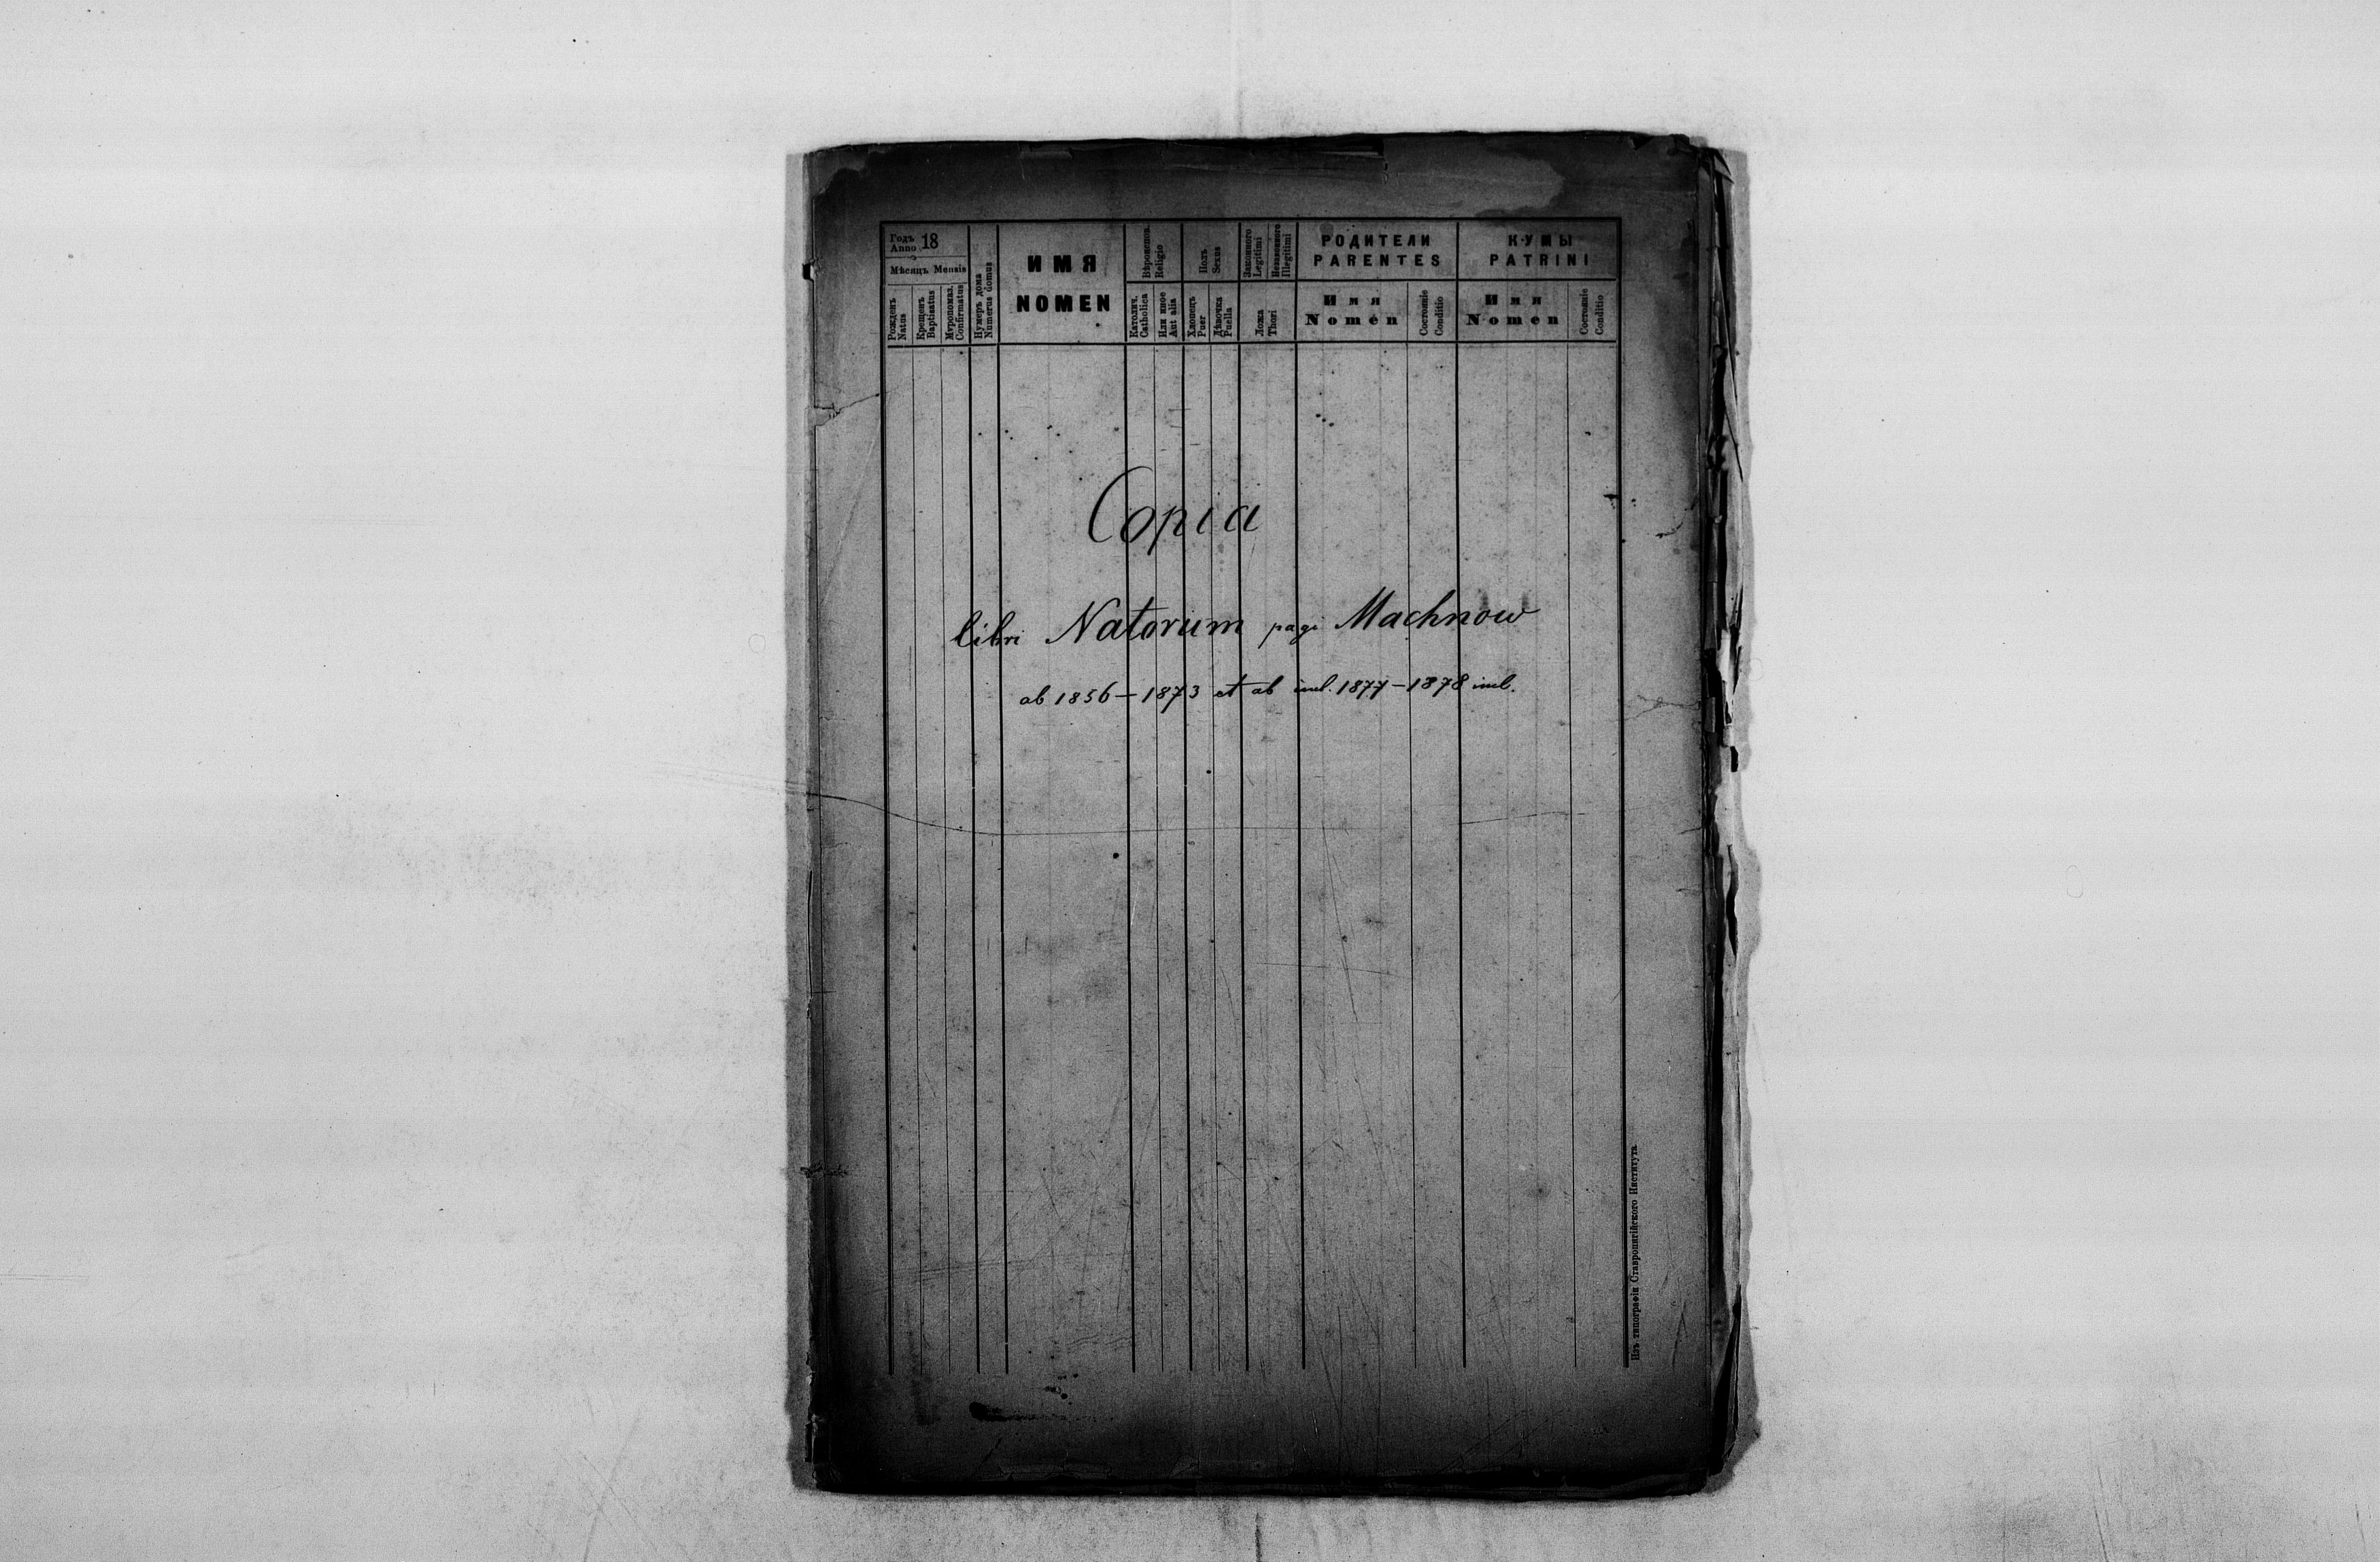 Годъ
Anno 18
Мѣсяцъ Mensis
Рожденъ
Natus
Крещенъ
Baptisatus
Мѵропомаз.
Confirmatus
Нумеръ дома
Numerus domus
ИМЯ
NOMEN
Вѣроиспов.
Religio
Католич.
Catholica
Или иное
Aut alia
Полъ
Sexus
Хлопецъ
Puer
Дѣвочка
Puella
Законного
Legitimi
Незаконного
Illegitimi
Ложа
Thori
РОДИТЕЛИ
PARENTES
Имя
Nomen
Состояніе
Conditio
КУМЫ
PATRINI
Имя
Nomen
Состояніе
Conditio
Copia
libri Natorum pagi Machnow
ab 1856 – 1873 et ab incl. 1877 – 1878 incl.
Изъ типографіи Ставропигійского Института